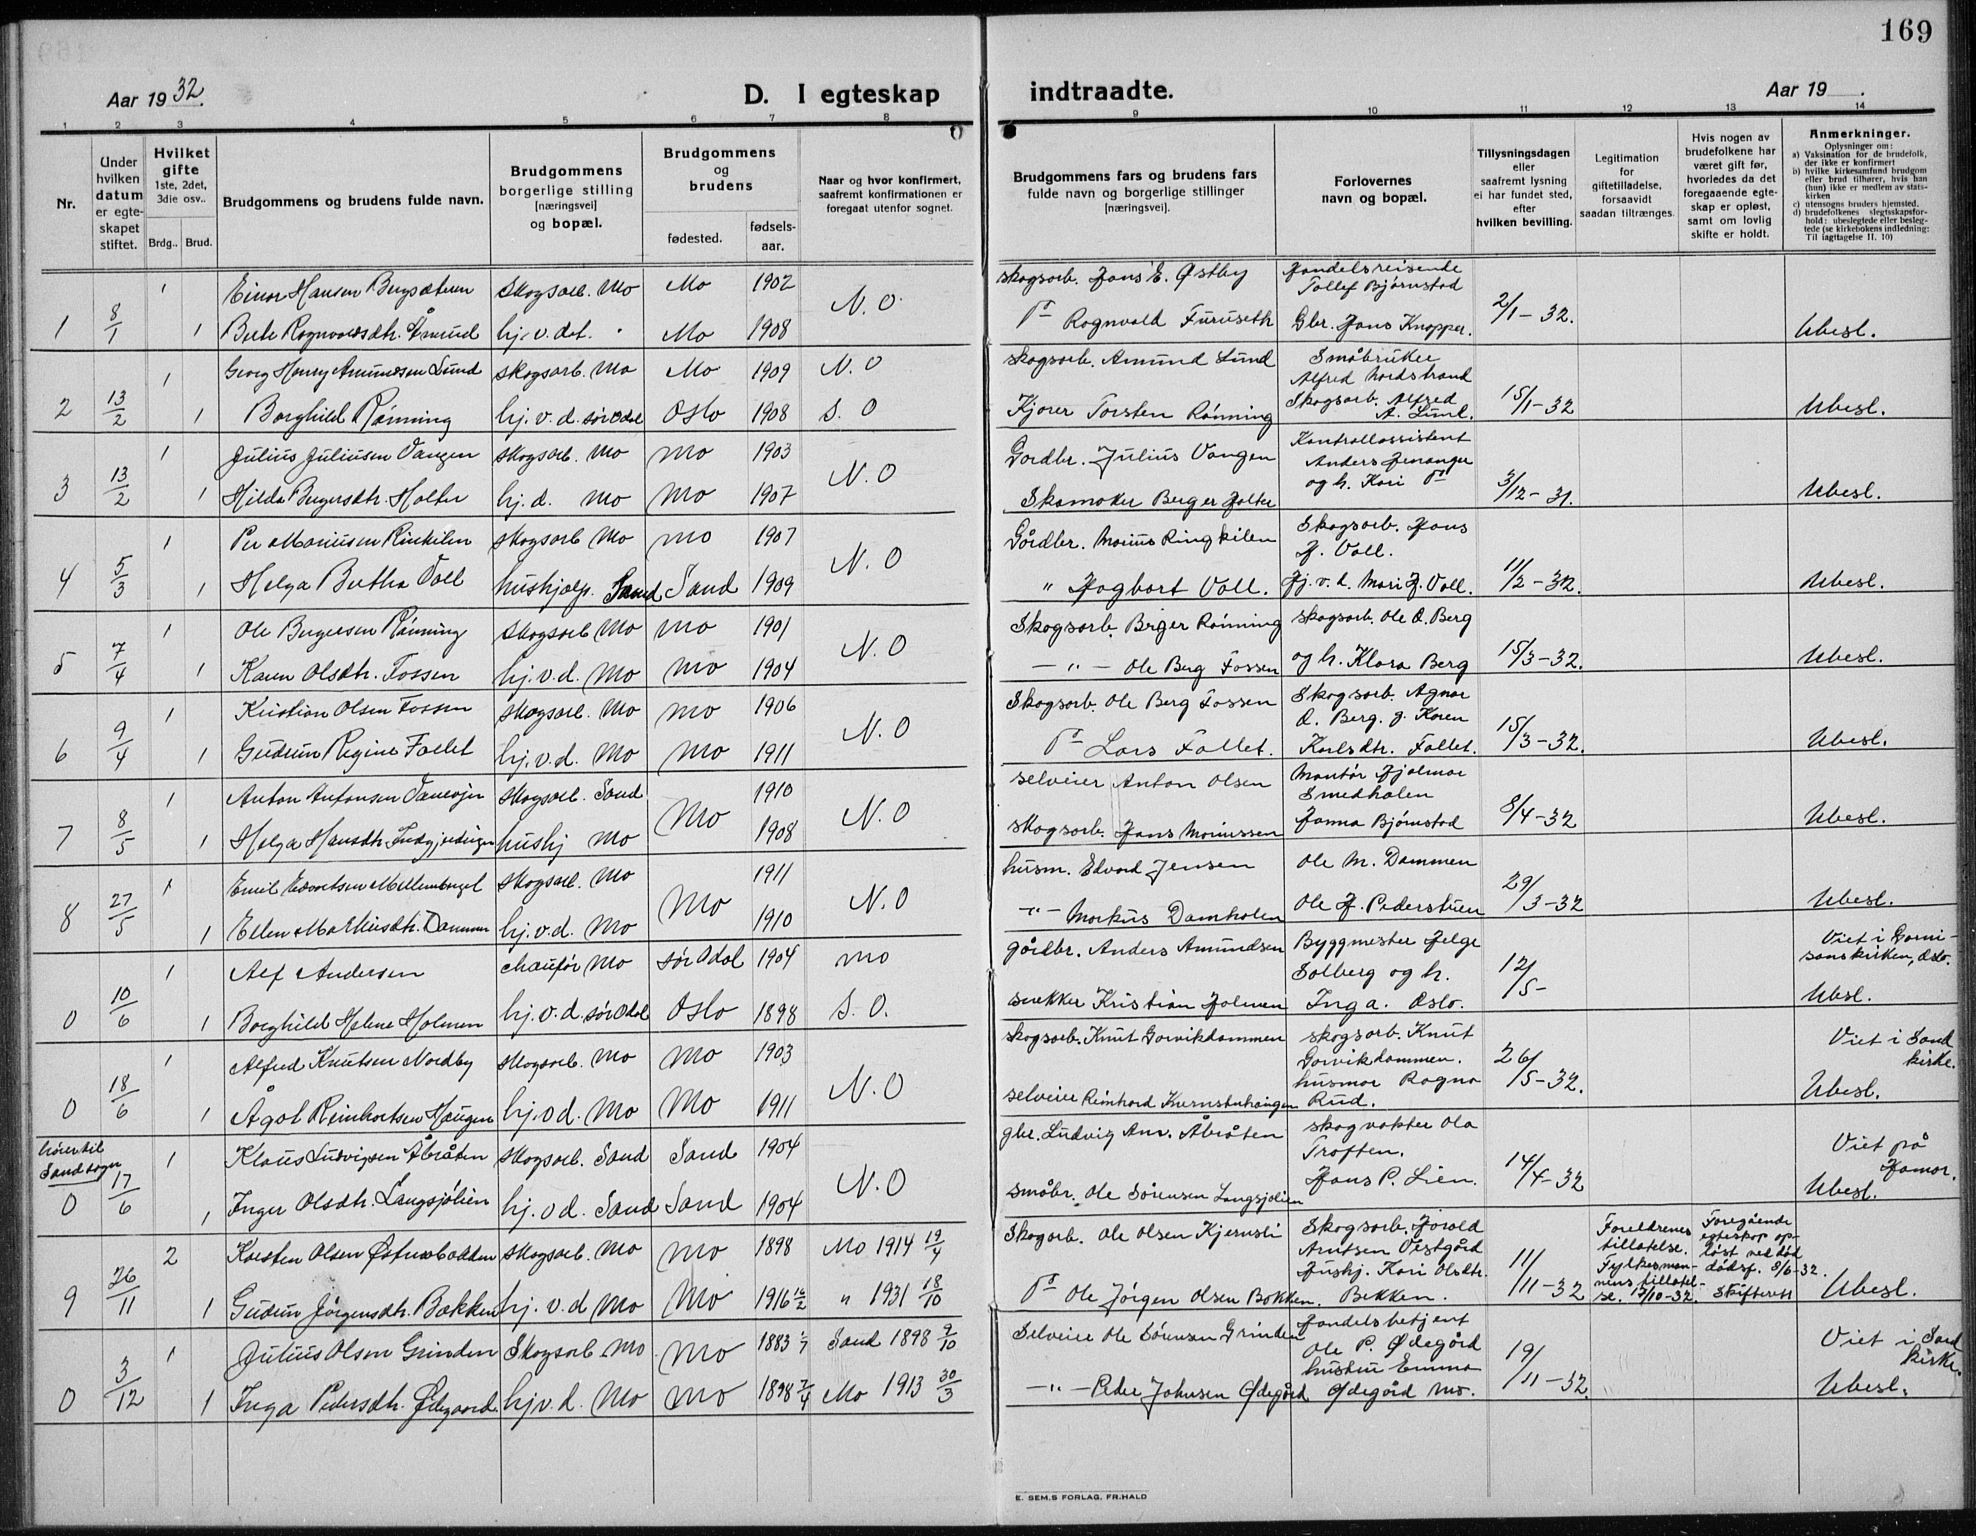 169
Aar 1932.
D. I egteskap
indtraadte.
Aar 19 .
1 2 3 4 5 6 7 8
9 10 11 12 13 14
Nr.
Under hvilken datum er egteskapet stiftet.
Hvilket gifte 1ste, 2det, 3die osv..
Brdg.. Brud.
Brudgommens og brudens fulde navn.
Brudgommens borgerlige stilling [næringsvei] og bopæl.
Brudgommens og brudens
fødested.
fødsels-aar.
Naar og hvor konfirmert, saafremt konfirmationen er foregaat utenfor sognet.
Brudgommens fars og brudens fars fulde navn og borgerlige stillinger [næringsvei].
Forlovernes navn og bopæl.
Tillysningsdagen eller saafremt lysning ei har fundet sted, efter hvilken bevilling.
Legitimation for giftetilladelse, forsaavidt saadan tiltrænges.
Hvis nogen av brudefolkene har været gift før, hvorledes da det foregaaende egteskap er opløst, samt om lovlig skifte er holdt.
Anmerkninger.
Oplysninger om:
a) Vaksination for de brudefolk, der ikke er konfirmert
b) hvilke kirkesamfund brudgom eller brud tilhører, hvis han (hun) ikke er medlem av statskirken
c) utensogns bruders hjemsted.
d) brudefolkenes slegtsskapsforhold: ubeslegtede eller beslegtede (se kirkebokens indledning: Til iagttagelse II. 10)
1 8/1 1 Einar Hansen Bergsæteren skogsarb. Mo Mo 1902 N. O. skogsarb. Hans E. Østby Handelsreisende Tollef Bjørnstad 2/1-32.
1 Berte Ragnvaldsdtr. Åmrud hj. v. det. Mo 1908 Do Ragnvald Furuseth Gbr. Hans Knapper. Ubesl.
2 13/2 1 Georg Henry Amundsen Lund skogsarb. Mo Mo 1909 N. O skogsarb. Amund Lund Småbruker Alfred Nordstrand 15/1-32
1 Borghild Rønning hj. v. d. sør Odal Oslo 1908 S. O Kjører Torsten Rønning Skogsarb. Alfred A. Lund. Ubesl.
3 13/2 1 Julius Juliusen Vangen skogsarb. Mo Mo 1903 N. O Gårdbr. Julius Vangen Kontrollassistent Anders 3/12-31.
1 Hilda Bergersdtr. Holter hj. d. Mo Mo 1907 Skomaker Berger Holter og h. Kari Do Ubesl.
4 5/3 1 Per Mariusen Rinkilen skogsarb Mo Mo 1907 N. O Gårdbr. Marius Ringkilen Skogsarb. Hans H. Voll. 11/2-32.
1 Helga Bertha Voll hushjelp. Sand Sand 1909 " Hagbart Voll. Hj. v. d. Mari H. Voll. Ubesl.
5 7/4 1 Ole Bergersen Rønning Skogsarb Mo Mo 1901 N. O Skogsarb. Birger Rønning skogsarb. Ole O. Berg 15/3-32.
1 Karen Olsdtr. Fossen hj. v. d. Mo Mo 1904 — " — Ole Berg Fossen og h. Klara Berg Ubesl.
6 9/4 1 Kristian Olsen Fossen Skogsarb. Mo Mo 1906 N. O Skogsarb. Ole Berg Fossen Skogsarb. Agnar O. Berg. g. Karen 15/3-32.
1 Gudrun Regine Fallet hj. v. d. Mo Mo 1911 Do Lars Fallet. Karlsdtr. Fallet. Ubesl.
7 8/5 1 Anton Antonsen skogsarb. Sand Mo 1910 N. O selveier Anton Olsen Montør Hjalmar Smedholen 8/4-32
1 Helga Hansdtr. hushj Mo 1908 skogsarb. Hans Mariussen Hanna Bjørnstad Ubesl.
8 27/5 1 Emil Edvartsen skogsarb. Mo Mo 1911 N. O husm. Edvard Jensen Ole M. Dammen 29/3-32
1 Ellen Markusdtr. Dammen hj. v. d. Mo 1910 — " — Markus Damholen Ole H. Pederstuen Ubesl.
0 10/6 1 Alf Andersen chaufør Mo sør Odal 1904 Mo gårdbr. Anders Amundsen Byggmester Helge Solberg og h. 12/5- Viet i Garnisonskirken, Oslo.
1 Borghild Helene Holmen hj. v. d. sør Odal Oslo 1898 S. O. snekker Kristian Holmen Inga. Oslo. Ubesl.
0 18/6 1 Alfred Knutsen Nordby skogsarb. Mo Mo 1903 N. O skogsarb. Knut Gorvikdammen skogsarb. Knut Gorvikdammen. 26/5-32. Viet i Sand kirke.
1 Ågot Reinhartsen Haugen hj. v d. Mo Mo 1911 selveier Reinhard husmor Ragna Rud. Ubesl.
hører til Sand sogn
0 17/6 1 Klaus Ludvigsen Åbråten skogsarb. Sand Sand 1904 N. O gbr. Ludvig Åbråten skogvokter Ola Troften. 14/4-32 Viet på Hamar.
1 Inger Olsdtr. Langsjølien hj. v d. Sand Sand 1904 småbr. Ole Sørensen Langsjølien Hans P. Lien. Ubesl.
9 26/11 2 Karsten Olsen skogsarb. Mo Mo 1898 Mo 1914 19/4 Skogarb. Ole Olsen Kjernsli Skogsarb. Harald Amtsen Vestgård 11/11-32 Foreldrenes tillatelse. Fylkesmannens tillatelse. 15/10-32. Foregående egteskap opløst ved død dødsf. 8/6-32. Skifterett
1 Gudrun Jørgensdtr. Bakken hj. v. d Mo Mo 1916 16/2 " 1931 18/10 Do Ole Jørgen Olsen Bakken. Hushj. Kari Olsdtr. Bekken. Ubesl.
0 3/12 1 Julius Olsen Grinden Skogsarb. Mo Mo 1883 1/7 Sand 1898 9/10 Selveier Ole Sørensen Grinden Handelsbetjent Ole P. Ødegård 19/11-32. Viet i Sand kirke.
1 Inga Pedersdtr. Ødegaard hj v. d. Mo Mo 1898 7/4 Mo 1913 30/3 — " — Peder Johnsen Ødegård hustru Emma Ødegård Mo. Ubesl.
E. SEM.S FORLAG, FR.HALD